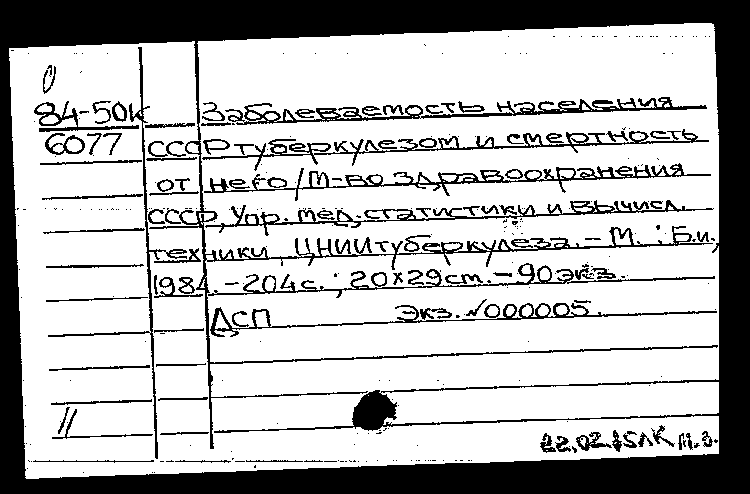 0
84-50к Заболеваемость населения
6077 СССР туберкулезом и смертность
от него / М-во здравоохранения
СССР, Упр. мед. статистики и вычисл.
техники, ЦНИИ туберкулеза. – М. : Б.и.,
1984. – 204 с. ; 20×29 см. – 90 экз.
ДСП Экз. №000005.
11
22.02.85 ЛК М.З.